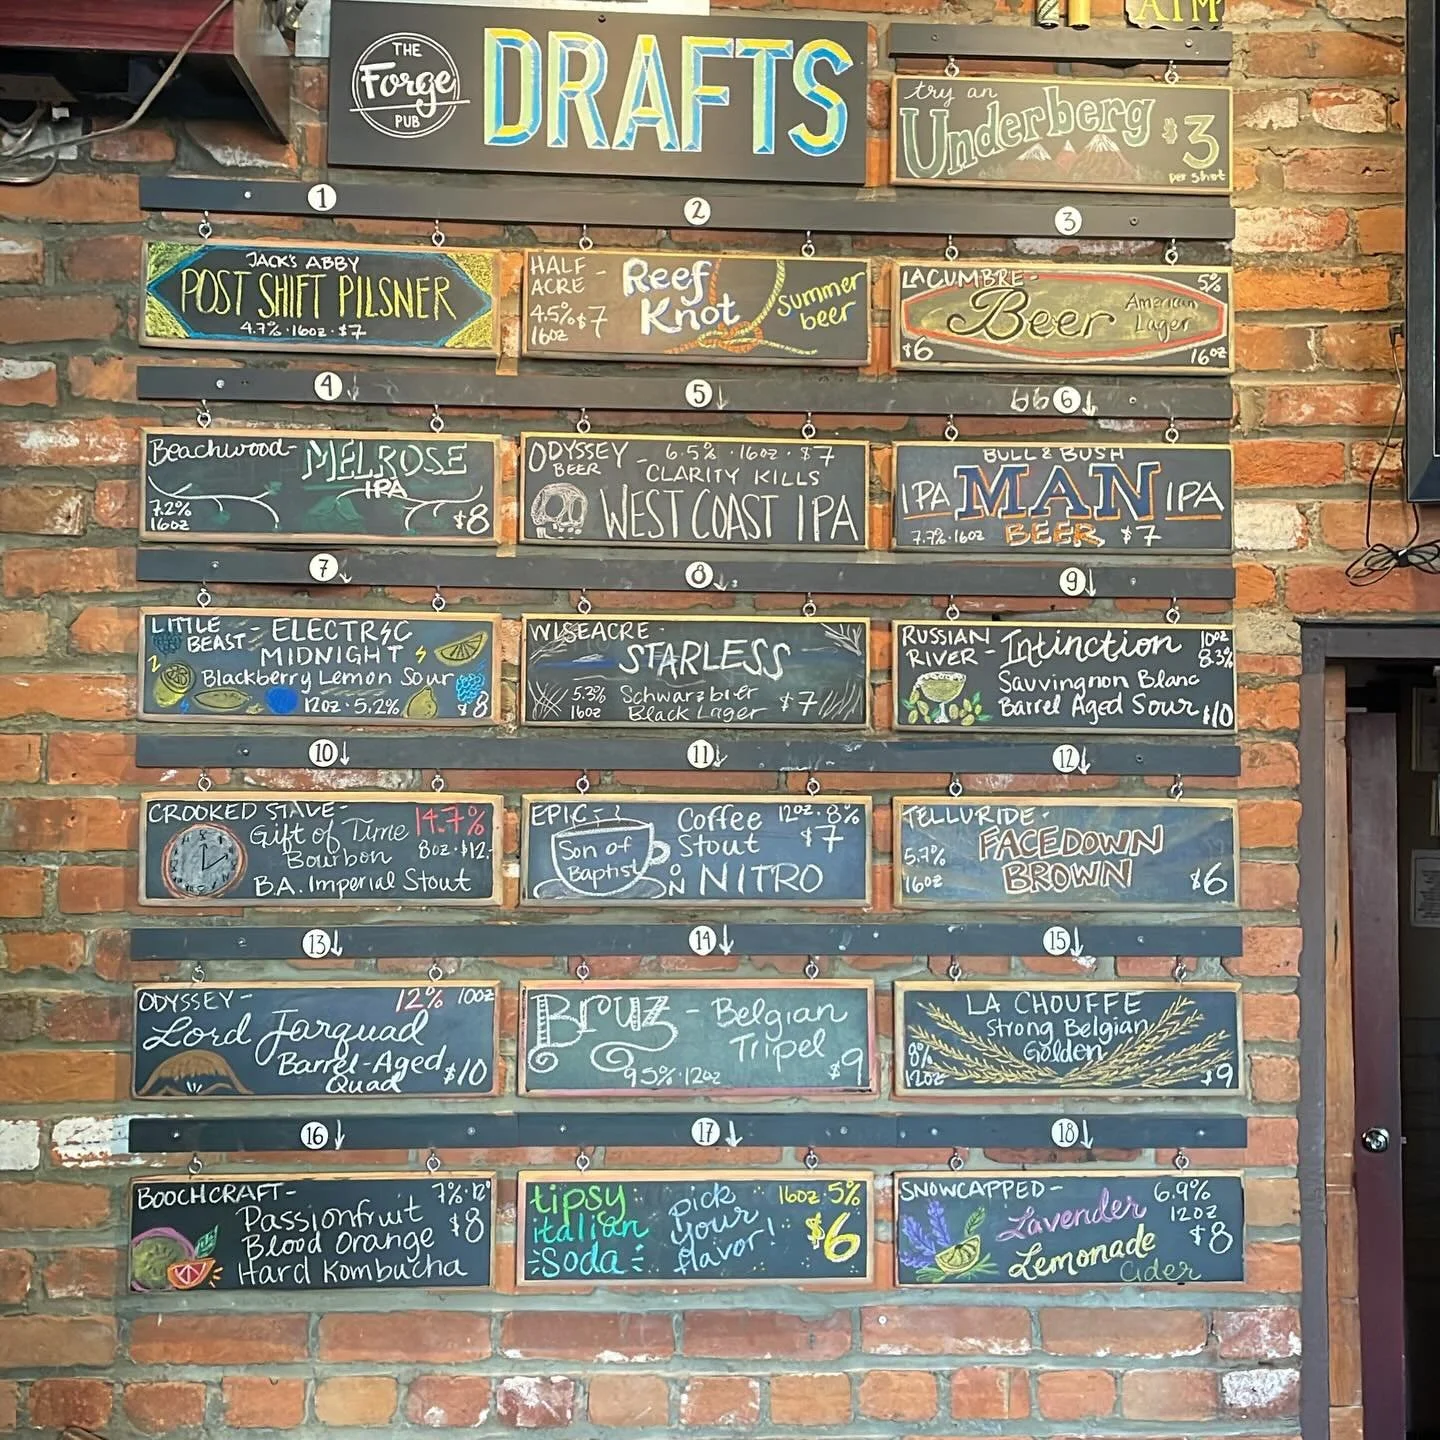 THE
Forge
PUB
DRAFTS
ATM
try an
Underberg $3
per shot
1
2
3
JACK'S ABBY
POST SHIFT PILSNER
4.7% · 16oz · $7
HALF -
ACRE
4.5% $7
16oz
Reef
Knot
Summer
beer
LA CUMBRE -
5%
Beer
American
Lager
$6
16oz
4
5
6
Beachwood -
MELROSE
IPA
7.2%
16oz
$8
ODYSSEY -
BEER
6.5% · 16oz · $7
CLARITY KILLS
WEST COAST IPA
BULL & BUSH
IPA MAN IPA
7.7% · 16oz BEER $7
7
8
9
LITTLE
BEAST -
ELECTRIC
MIDNIGHT
Blackberry Lemon Sour
12oz · 5.2%
$8
WISEACRE -
STARLESS
5.3%
16oz
Schwarzbier
Black Lager
$7
RUSSIAN
RIVER -
Intinction
10oz
8.3%
Sauvingnon Blanc
Barrel Aged Sour $10
10
11
12
CROOKED STAVE -
Gift of Time 14.7%
Bourbon 8oz · $12.
B.A. Imperial Stout
EPIC -
Son of
Baptist
Coffee
Stout
12oz · 8%
$7
ON NITRO
TELLURIDE -
FACEDOWN
BROWN
5.7%
16oz
$6
13
14
15
ODYSSEY -
12% 10oz
Lord Farquad
Barrel-Aged
Quad
$10
Bruz - Belgian
Tripel
9.5% · 12oz
$9
LA CHOUFFE
Strong Belgian
Golden
8%
12oz
$9
16
17
18
BOOCHCRAFT -
7% · 12°
Passionfruit $8
Blood Orange
Hard Kombucha
tipsy
italian
Soda
pick
your
flavor!
16oz · 5%
$6
SNOWCAPPED -
6.9%
12oz
$8
Lavender
Lemonade
Cider